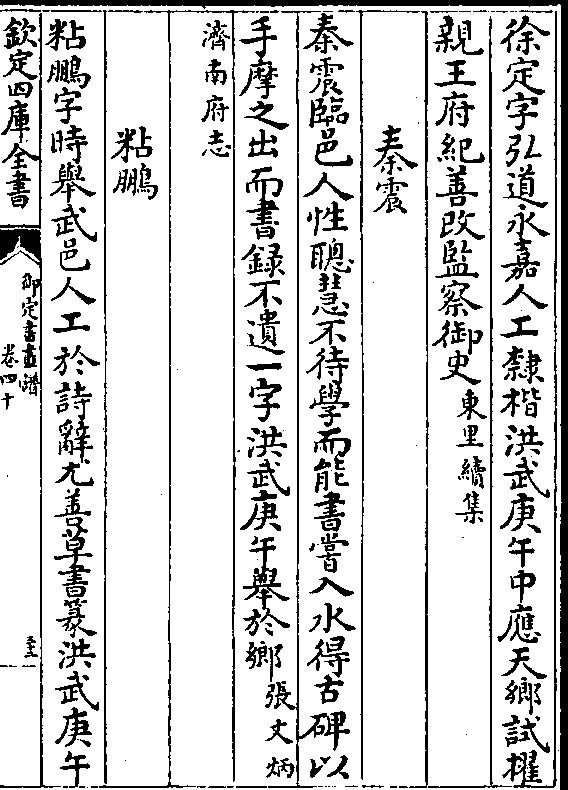 徐定字弘道永嘉人工隸楷洪武庚午中應天鄉試擢
親王府紀善改監察御史東里續集
秦震
秦震臨邑人性聰慧不待學而能書嘗入水得古碑以
手摩之出而書錄不遺一字洪武庚午舉於鄉張丈炳
濟南府志
粘鵬
粘鵬字時舉武邑人工於詩辭尤善草書篆洪武庚午
欽定四庫全書
御定書畫譜
卷四十